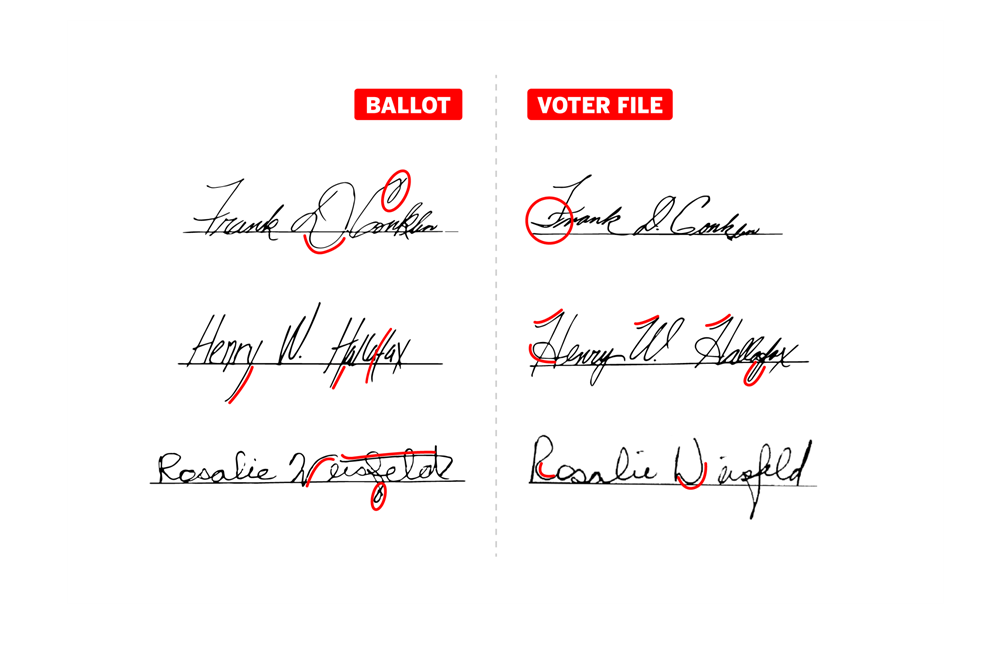 BALLOT VOTER FILE
Frank D. Conklin Frank D. Conklin
Henry W. Hallafax Henry W. Hallofax
Rosalie Weisfeld Rosalie Weisfeld